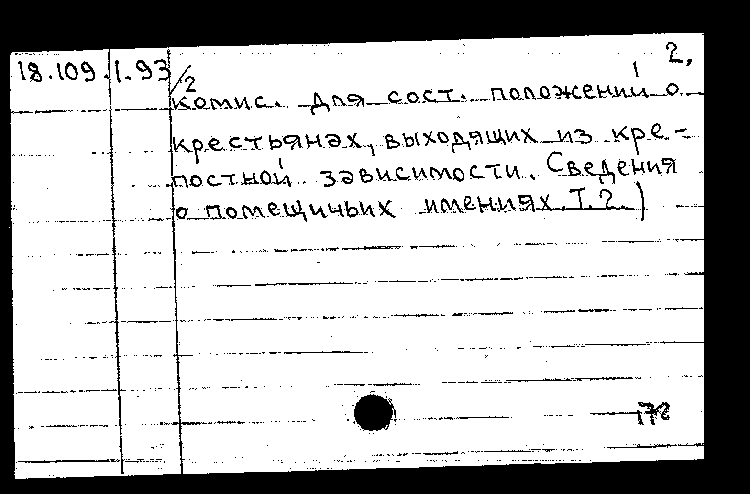 2.
18.109.1.93/2
комис. для сост. положений о
крестьянах, выходящих из кре=
постной зависимости. Сведения
о помещичьих имениях. Т.2.)
172